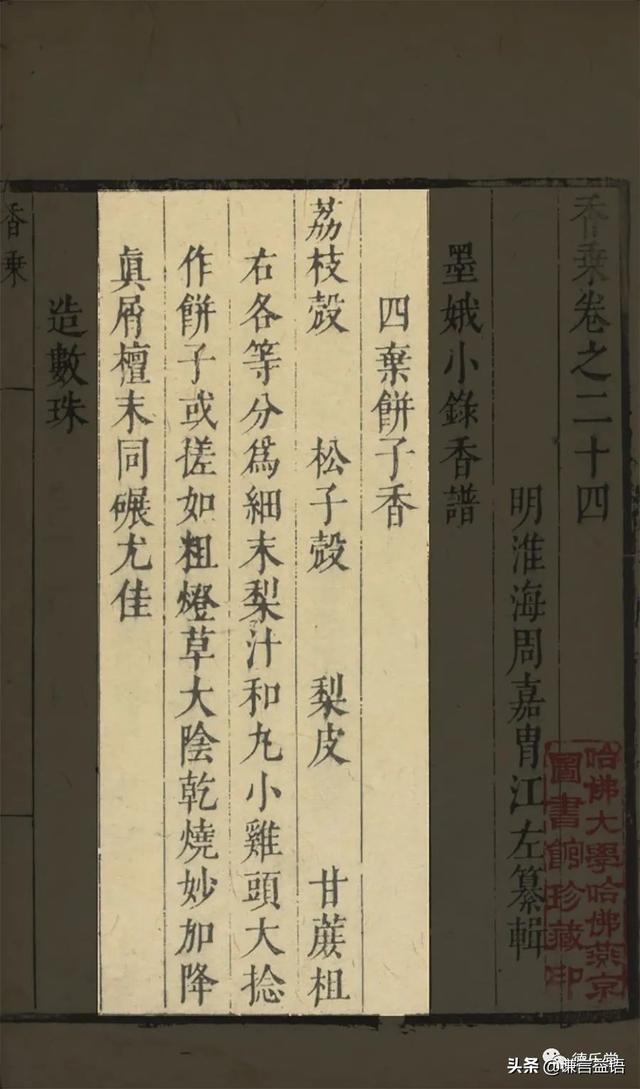 香乗卷之二十四
明淮海周嘉胄江左纂輯
墨娥小錄香譜
四棄餅子香
荔枝殼 松子殼 梨皮 甘蔗柤
右各等分爲細末梨汁和丸小雞頭大捻
作餅子或搓如粗燈草大陰乾燒妙加降
眞屑檀末同碾尤佳
造數珠
香乗
哈佛大學哈佛燕京
圖書館珍藏印
德乐堂
头条 @谦言益语